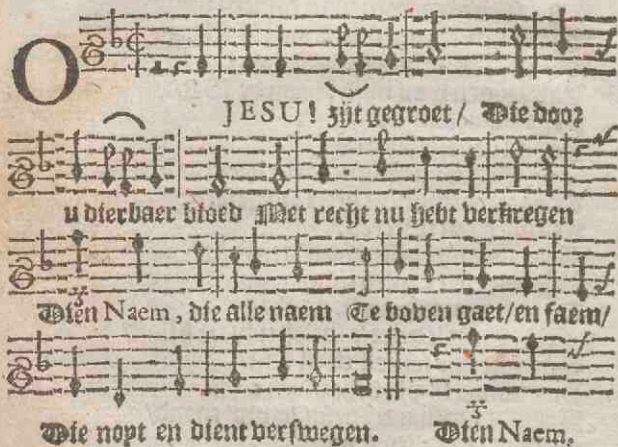 O JESU! zijt gegroet / Die door
u dierbaer bloed Met recht nu hebt verkregen
Dien Naem, die alle naem Te boven gaet/en faem/
Die noyt en dient verswegen. Dien Naem.